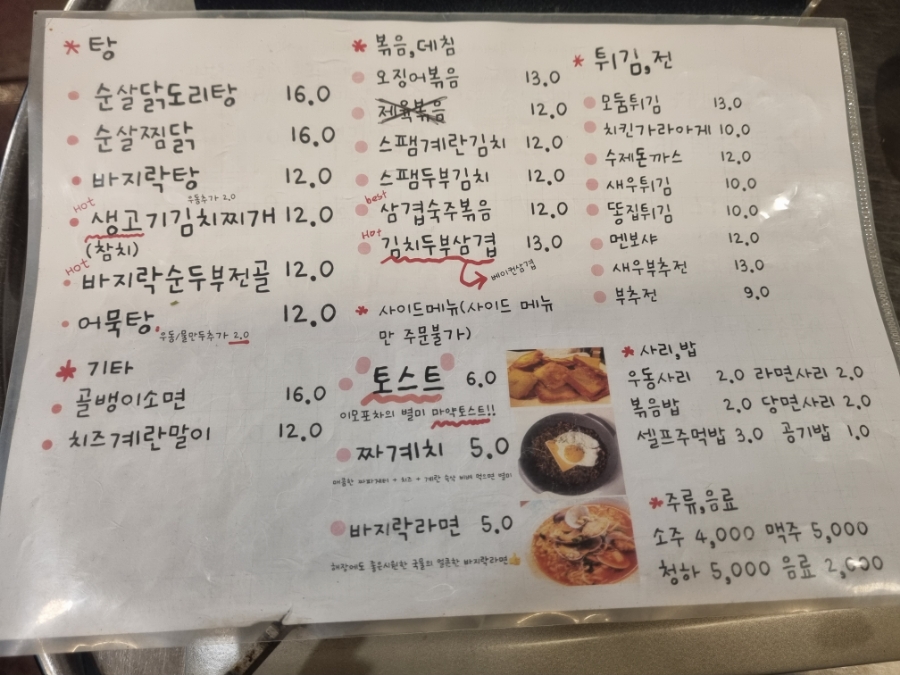 * 탕
순살닭도리탕 16.0
순살찜닭 16.0
바지락탕 12.0
우동추가 2.0
Hot 생고기김치찌개 12.0
(참치)
Hot 바지락순두부전골 12.0
어묵탕 12.0
우동/물만두추가 2.0
* 기타
골뱅이소면 16.0
치즈계란말이 12.0
* 볶음,데침
오징어볶음 13.0
제육볶음 12.0
스팸계란김치 12.0
스팸두부김치 12.0
best 삼겹숙주볶음 12.0
Hot 김치두부삼겹 13.0
베이컨삼겹
* 사이드메뉴(사이드 메뉴
만 주문불가)
토스트 6.0
이모포차의 별미 마약토스트!!
짜계치 5.0
매콤한 짜파게티 + 치즈 + 계란 슥삭 비벼 먹으면 별미
바지락라면 5.0
해장에도 좋은시원한 국물의 얼큰한 바지락라면👍
* 튀김,전
모둠튀김 13.0
치킨가라아게 10.0
수제돈까스 12.0
새우튀김 10.0
똥집튀김 10.0
멘보샤 12.0
새우부추전 13.0
부추전 9.0
* 사리,밥
우동사리 2.0 라면사리 2.0
볶음밥 2.0 당면사리 2.0
셀프주먹밥 3.0 공기밥 1.0
* 주류,음료
소주 4,000 맥주 5,000
청하 5,000 음료 2,000